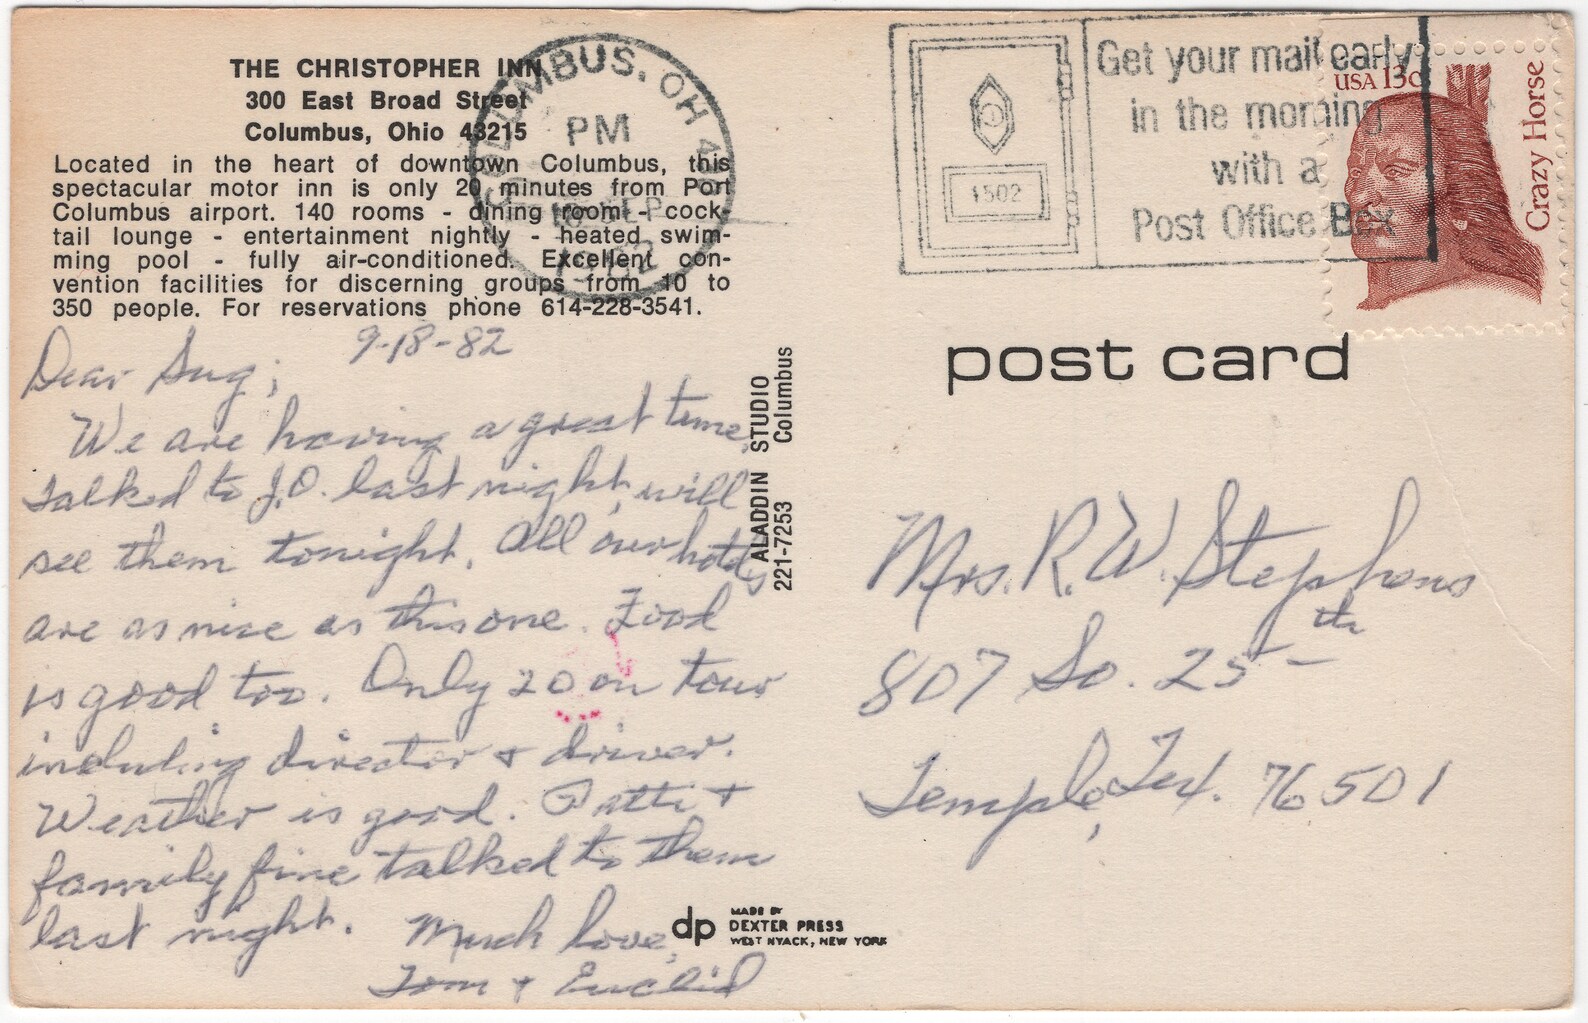 THE CHRISTOPHER INN
300 East Broad Street
Columbus, Ohio 43215
Located in the heart of downtown Columbus, this
spectacular motor inn is only 20 minutes from Port
Columbus airport. 140 rooms - dining room - cock-
tail lounge - entertainment nightly - heated swim-
ming pool - fully air-conditioned. Excellent con-
vention facilities for discerning groups from 10 to
350 people. For reservations phone 614-228-3541.
COLUMBUS, OH
PM
SEP
1982
9-18-82
Dear Sug;
We are having a great time.
Talked to J.O. last night, will
see them tonight. All our hotels
are as nice as this one. Food
is good too. Only 20 on tour
including director + driver.
Weather is good. Patti +
family fine talked to them
last night.
Much love,
Tom + Euclid
ALADDIN STUDIO
221-7253 Columbus
dp
MADE BY
DEXTER PRESS
WEST NYACK, NEW YORK
1502
Get your mail early
in the morning
with a
Post Office Box
USA 13c
Crazy Horse
post card
Mrs. R. W. Stephens
807 So. 25th
Temple, Tex. 76501